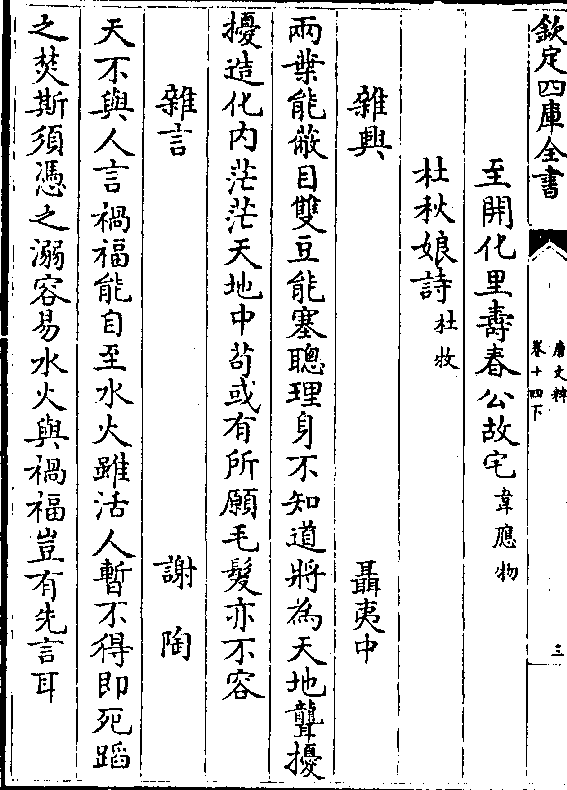 欽定四庫全書
唐文粹
卷十四下
三
至開化里壽春公故宅韋應物
杜秋娘詩杜牧
雜興 聶夷中
兩葉能蔽目雙豆能塞聰理身不知道將為天地聾擾
擾造化内茫茫天地中茍或有所願毛髮亦不容
雜言 謝陶
天不與人言禍福能自至水火雖活人暫不得即死蹈
之焚斯須憑之溺容易水火與禍福豈有先言耳